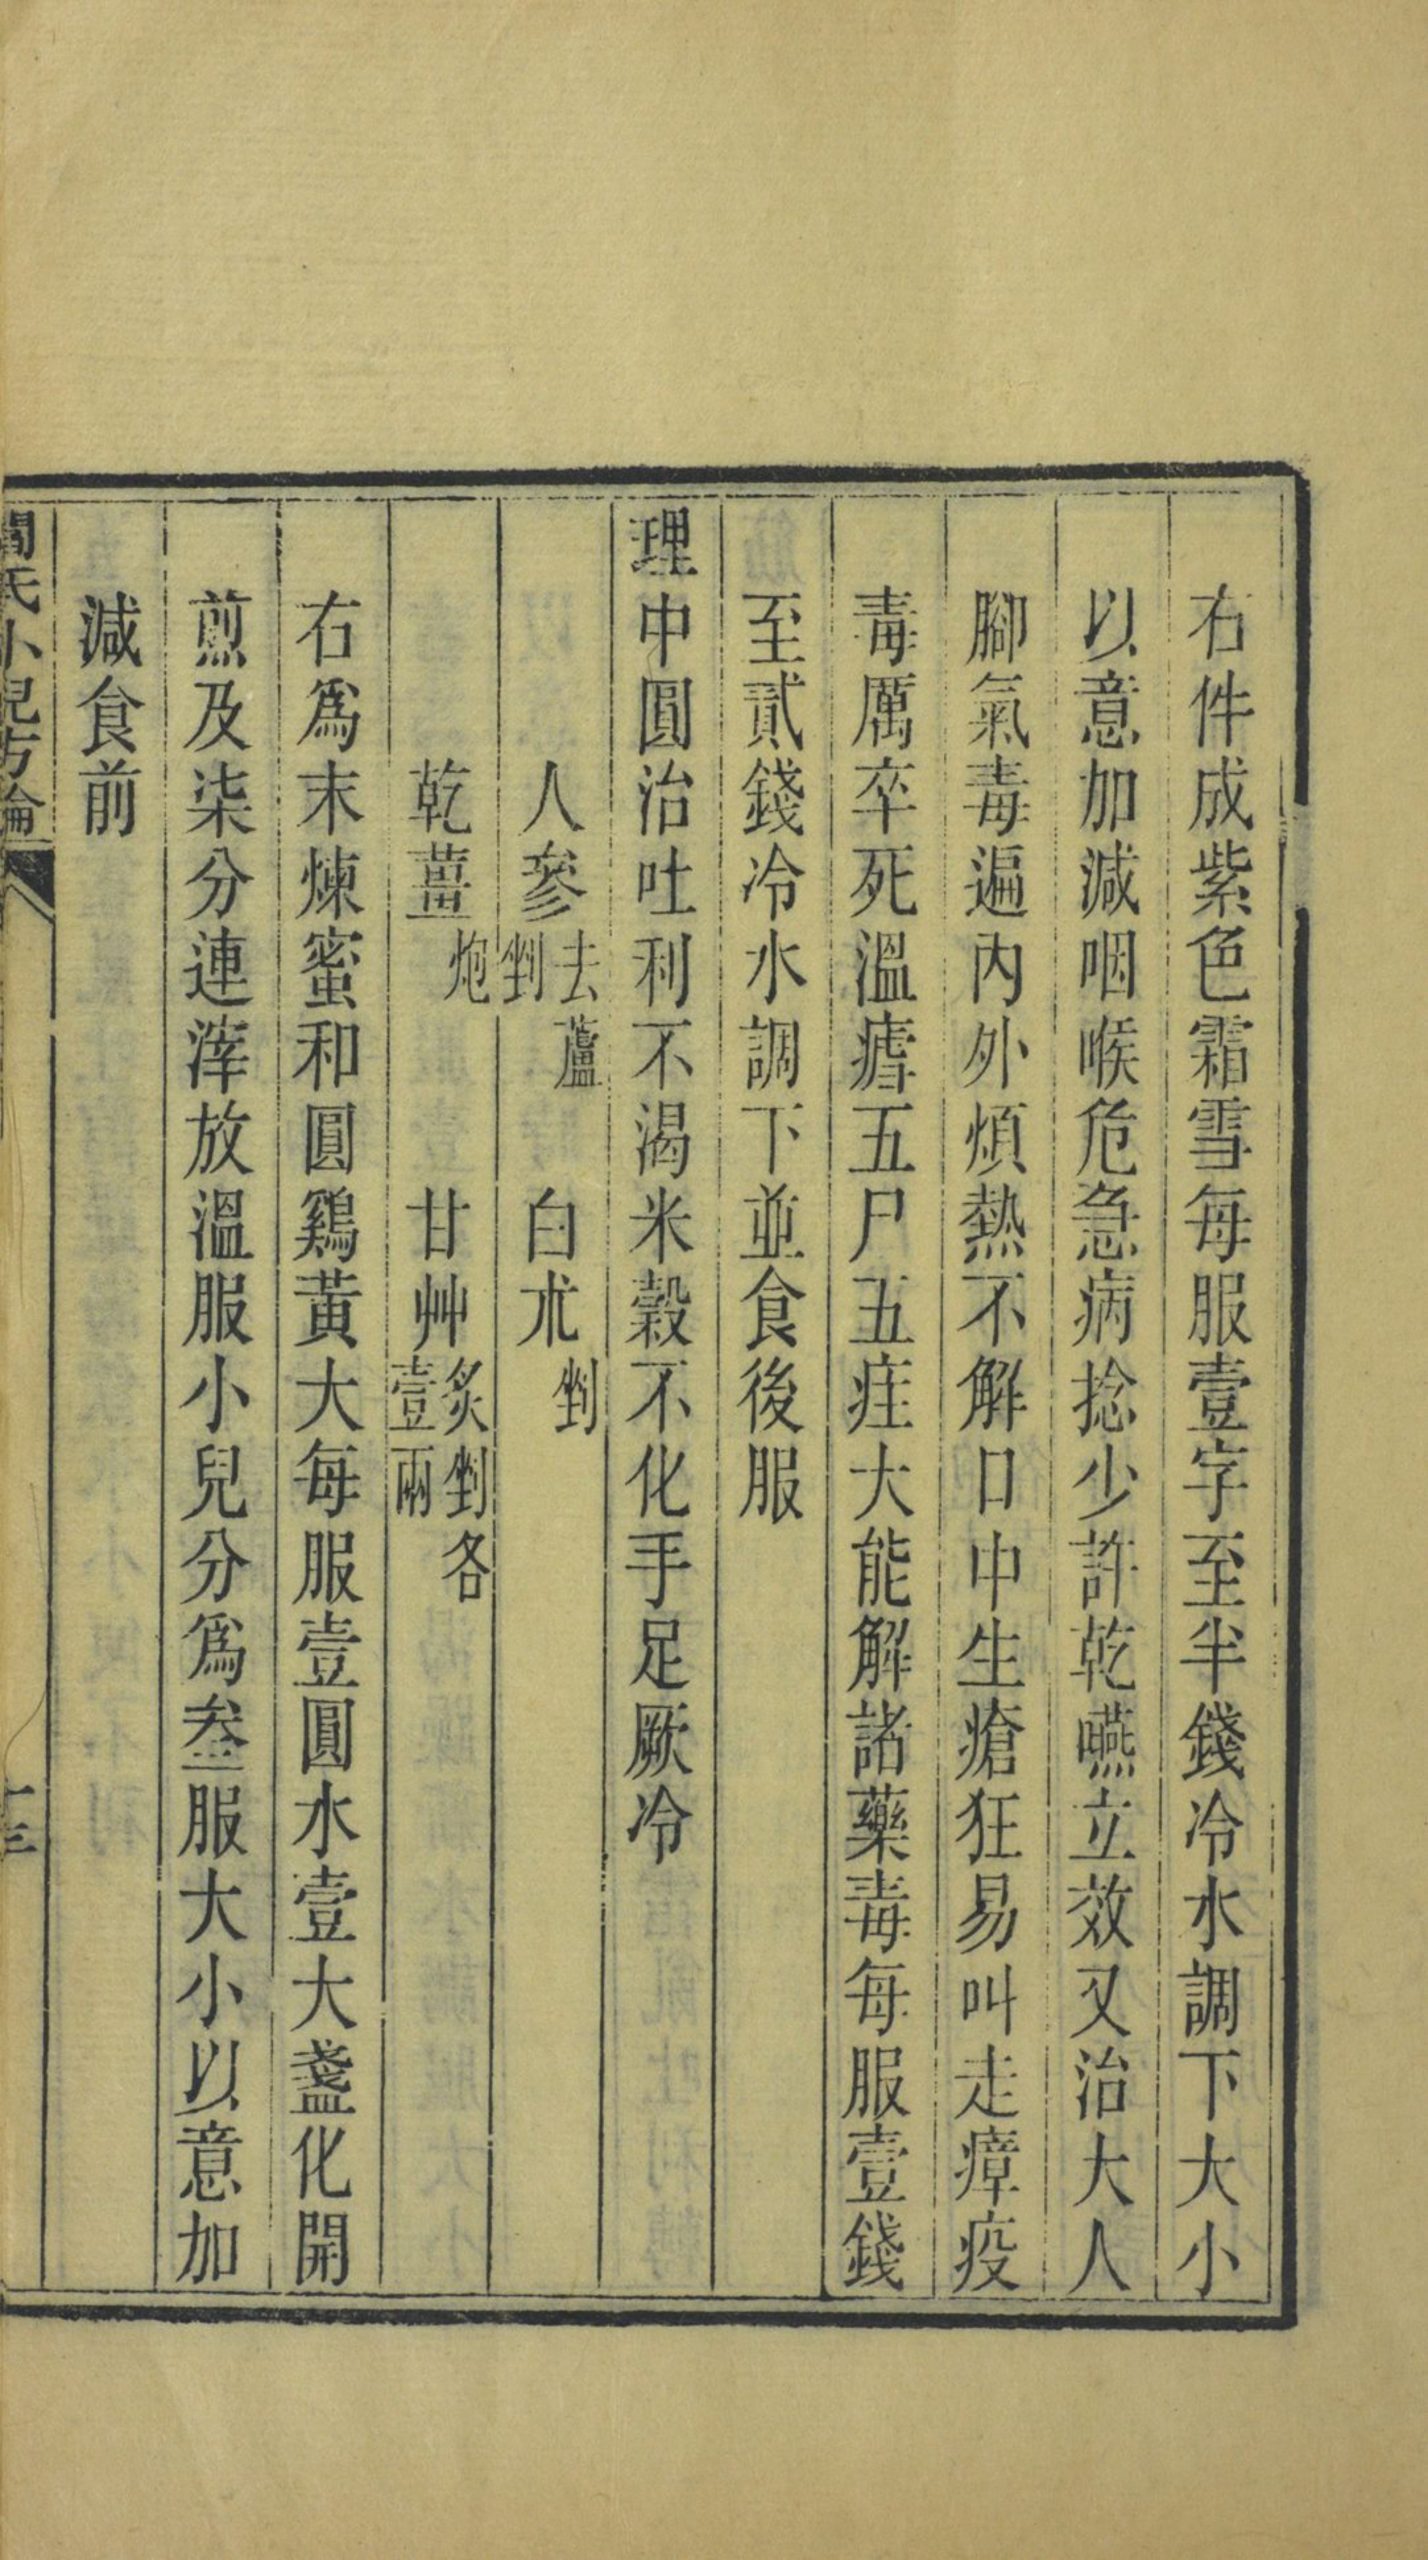 右件成紫色霜雪每服壹字至半錢冷水調下大小
以意加減咽喉危急病捻少許乾嚥立效又治大人
腳氣毒遍內外煩熱不解口中生瘡狂易叫走瘴疫
毒厲卒死溫瘧五尸五疰大能解諸藥毒每服壹錢
至貳錢冷水調下並食後服
理中圓治吐利不渴米穀不化手足厥冷
人參去蘆剉　白朮剉
乾薑炮　甘艸炙剉各壹兩
右爲末煉蜜和圓鷄黃大每服壹圓水壹大盞化開
煎及柒分連滓放溫服小兒分爲叄服大小以意加
減食前
閻氏小兒方論
十三